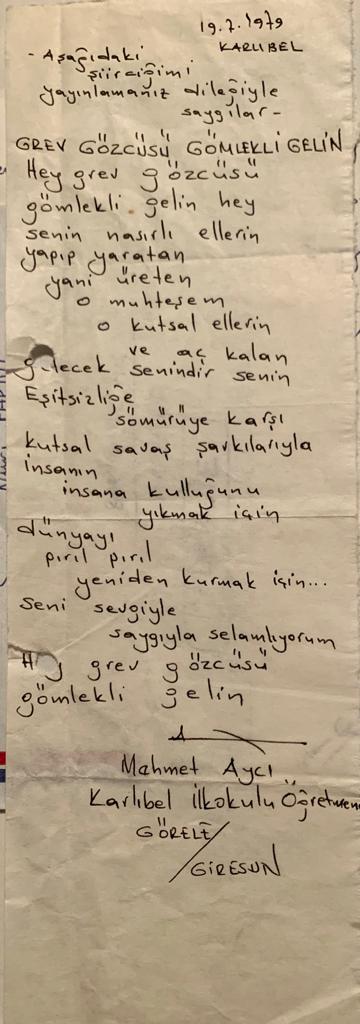 19.7.1979
KARLIBEL
- Aşağıdaki
şiirciğimi
yayınlamanız dileğiyle
saygılar -
GREV GÖZCÜSÜ GÖMLEKLİ GELİN
Hey grev gözcüsü
gömlekli gelin hey
senin nasırlı ellerin
yapıp yaratan
yani üreten
o muhteşem
o kutsal ellerin
ve aç kalan
gelecek senindir senin
Eşitsizliğe
sömürüye karşı
kutsal savaş şarkılarıyla
insanın
insana kulluğunu
yıkmak için
dünyayı
pırıl pırıl
yeniden kurmak için...
seni sevgiyle
saygıyla selamlıyorum
Hey grev gözcüsü
gömlekli gelin
Mahmet Aycı
Karlıbel İlkokulu Öğretmeni
GÖRELE/
/GİRESUN